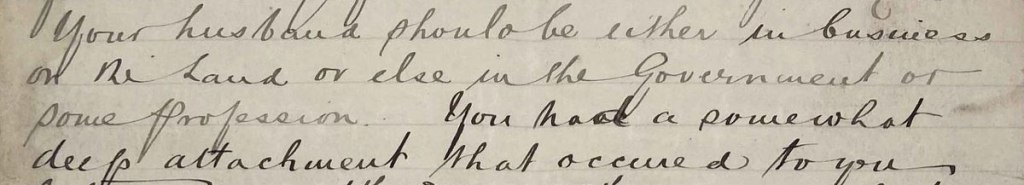 Your husband should be either in business
on the Land or else in the Government or
some profession. You had a somewhat
deep attachment that occured to you